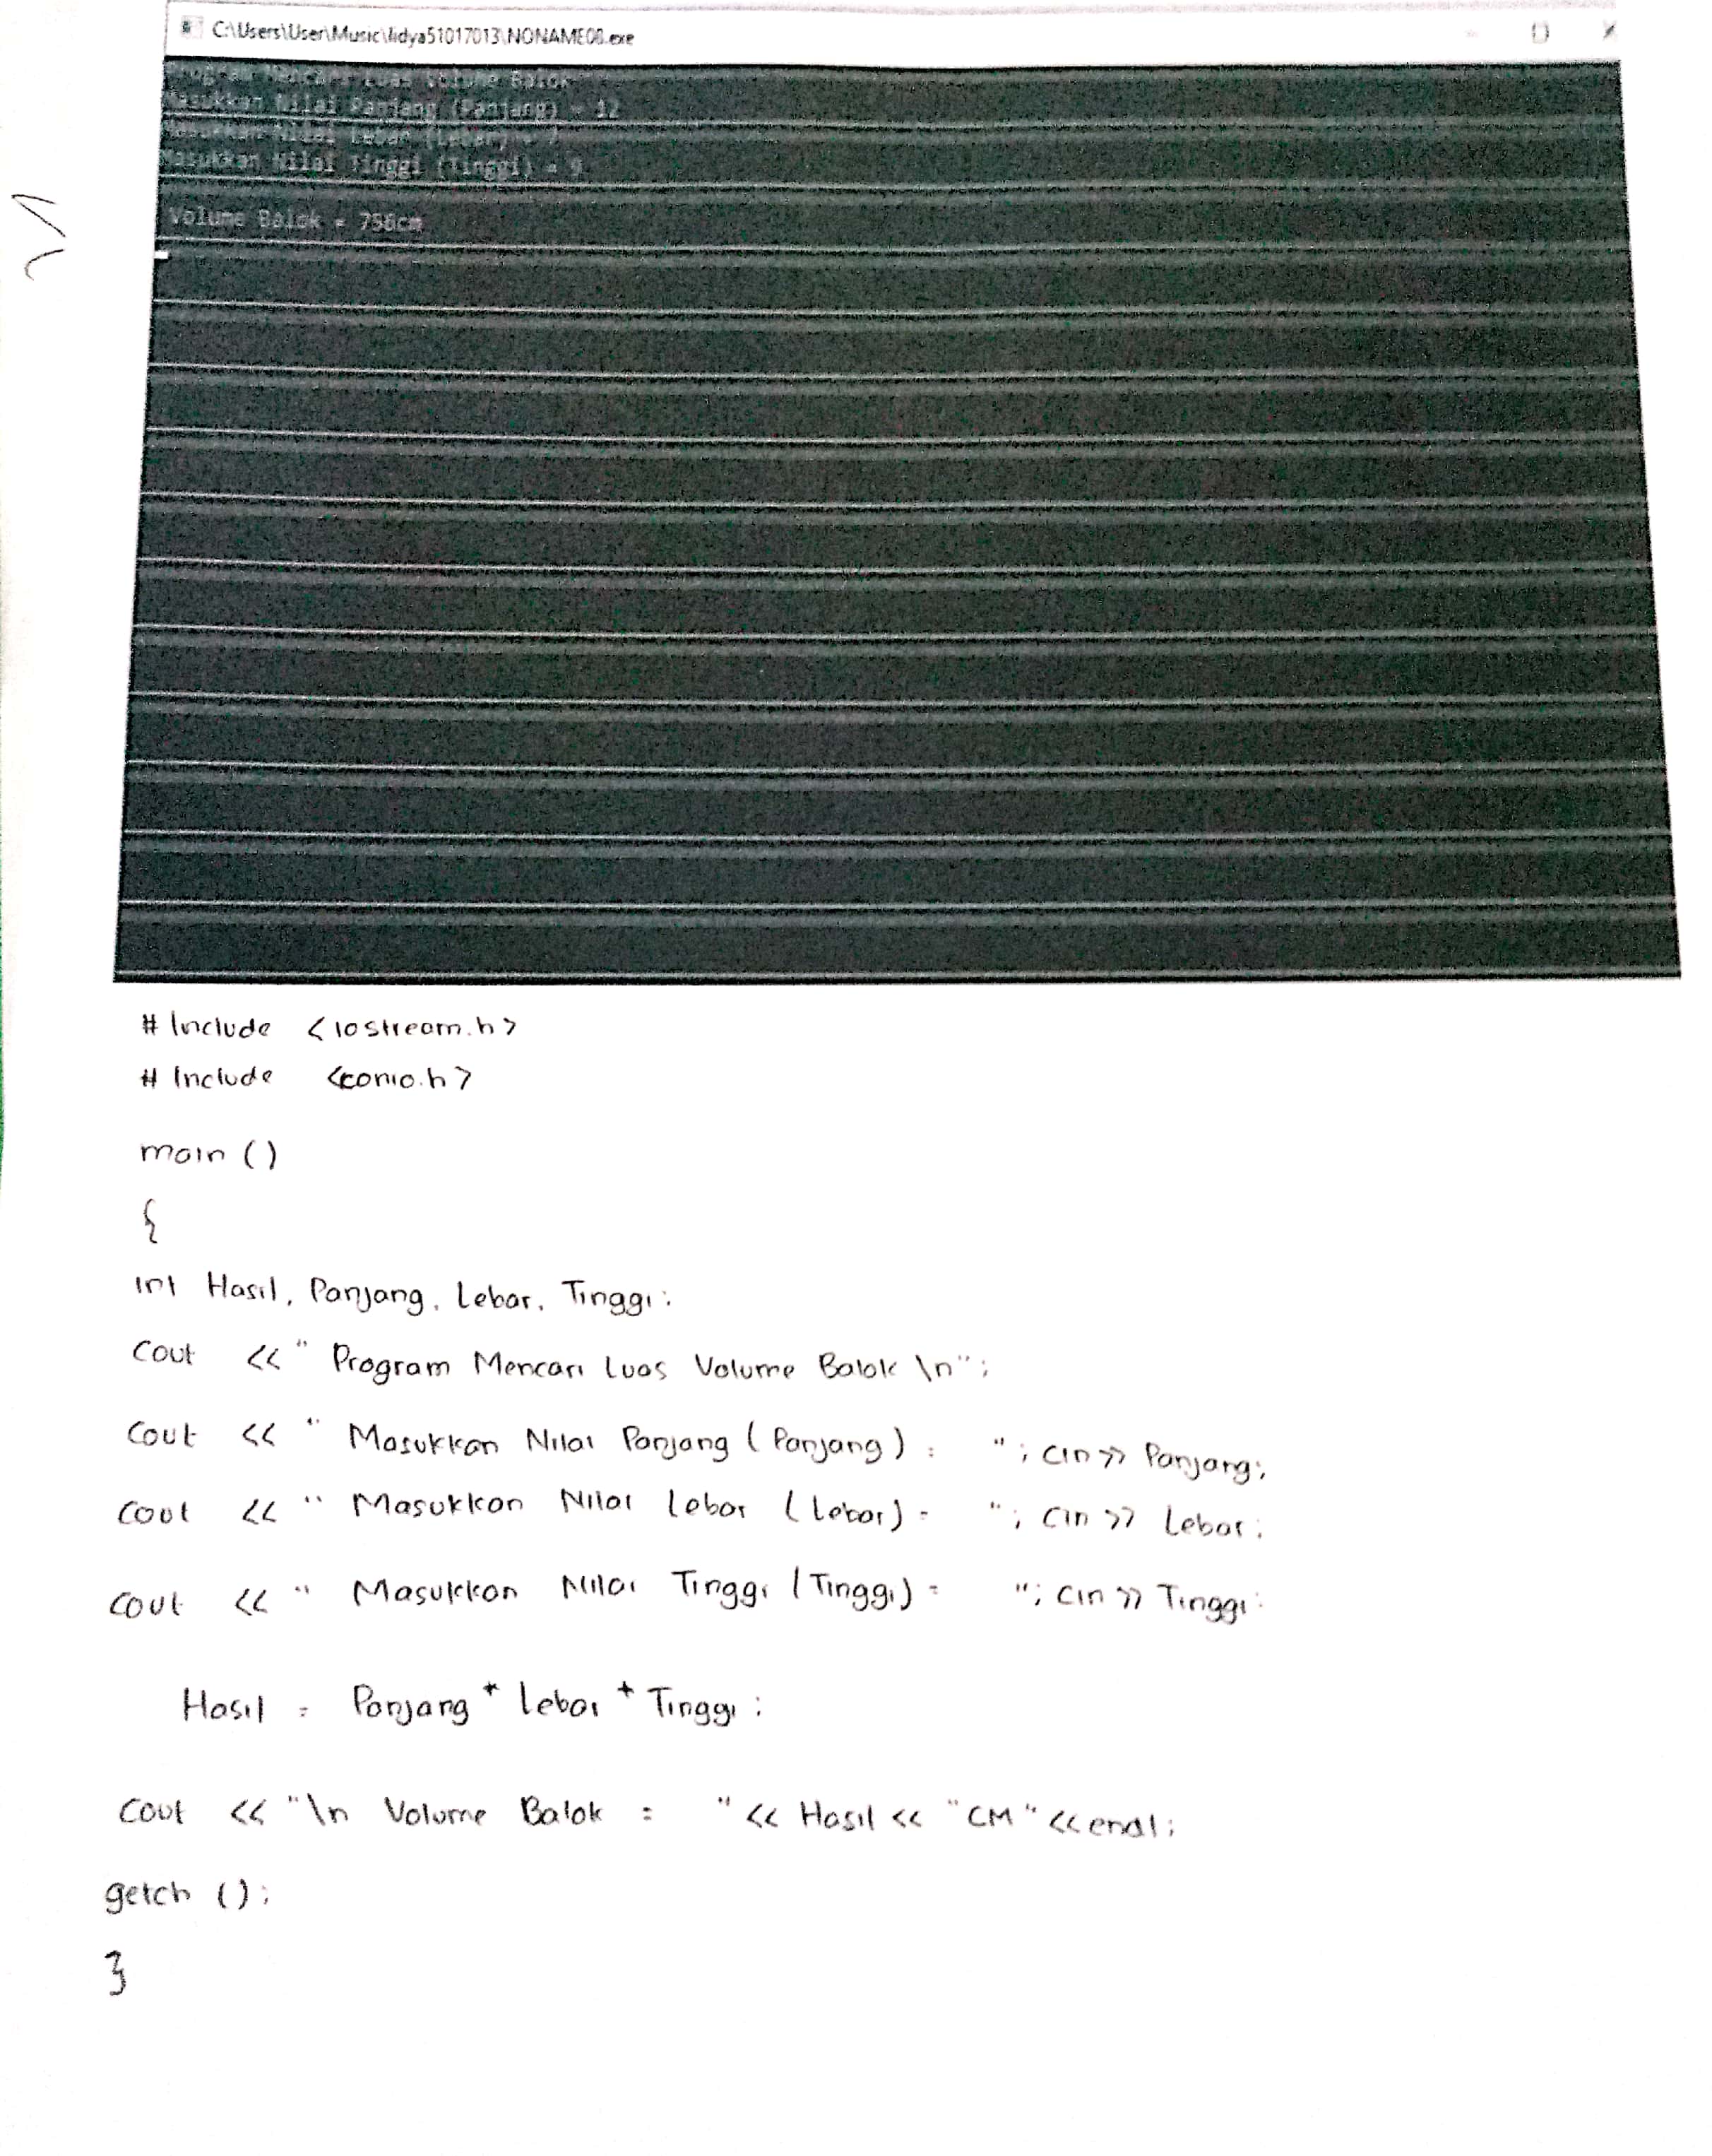 C:\Users\User\Music\lidya51017013\NONAME00.exe
Program Mencari Luas Volume Balok
Masukkan Nilai Panjang (Panjang) = 12
Masukkan Nilai Lebar (Lebar) = 7
Masukkan Nilai Tinggi (Tinggi) = 9
Volume Balok = 756cm
# Include <iostream.h>
# Include <conio.h>
main ()
{
int Hasil, Panjang, Lebar, Tinggi;
Cout << " Program Mencari Luas Volume Balok \n";
Cout << " Masukkan Nilai Panjang (Panjang) = "; cin >> Panjang;
Cout << " Masukkan Nilai Lebar (Lebar) = "; Cin >> Lebar;
Cout << " Masukkan Nilai Tinggi (Tinggi) = "; Cin >> Tinggi;
Hasil = Panjang * Lebar * Tinggi;
Cout << "\n Volume Balok = " << Hasil << "CM" << endl;
getch ();
}